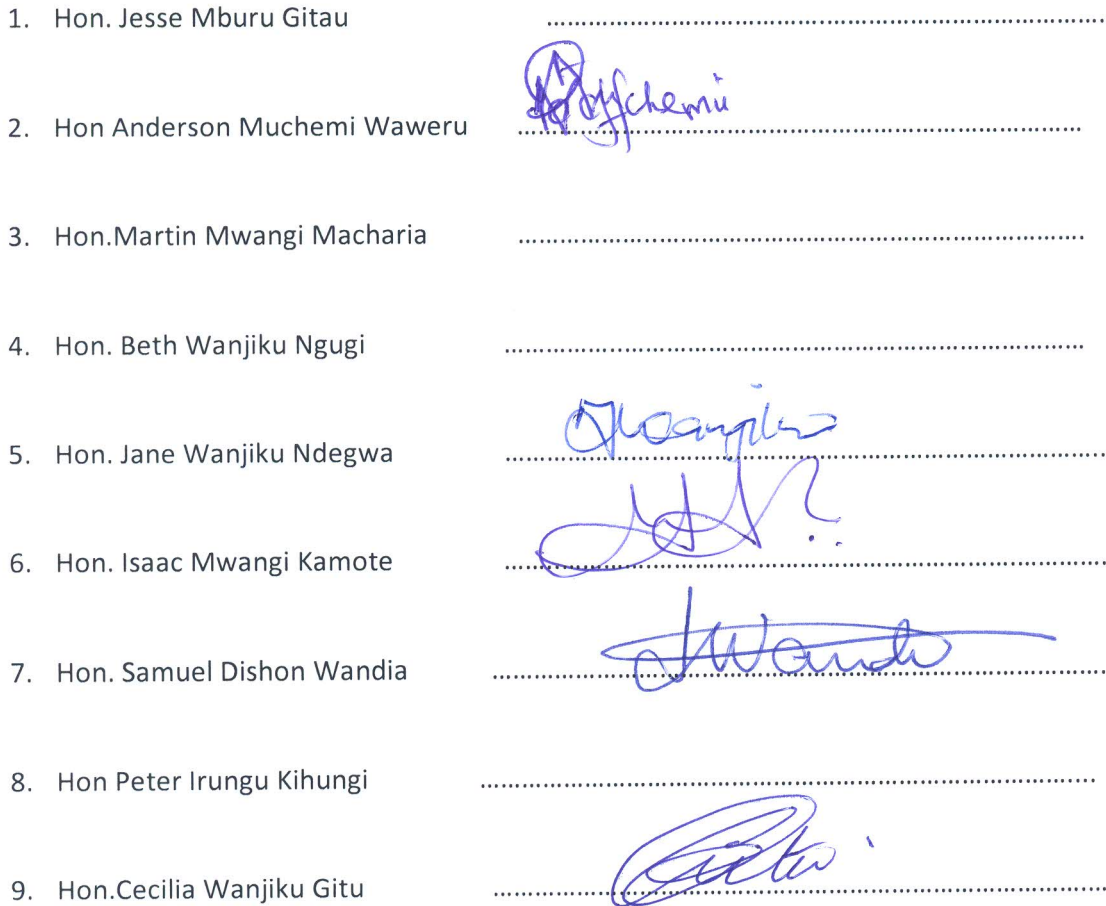 1. Hon. Jesse Mburu Gitau ................................................................
2. Hon Anderson Muchemi Waweru ................................................................
3. Hon.Martin Mwangi Macharia ................................................................
4. Hon. Beth Wanjiku Ngugi ................................................................
5. Hon. Jane Wanjiku Ndegwa ................................................................
6. Hon. Isaac Mwangi Kamote ................................................................
7. Hon. Samuel Dishon Wandia ................................................................
8. Hon Peter Irungu Kihungi ................................................................
9. Hon.Cecilia Wanjiku Gitu ................................................................